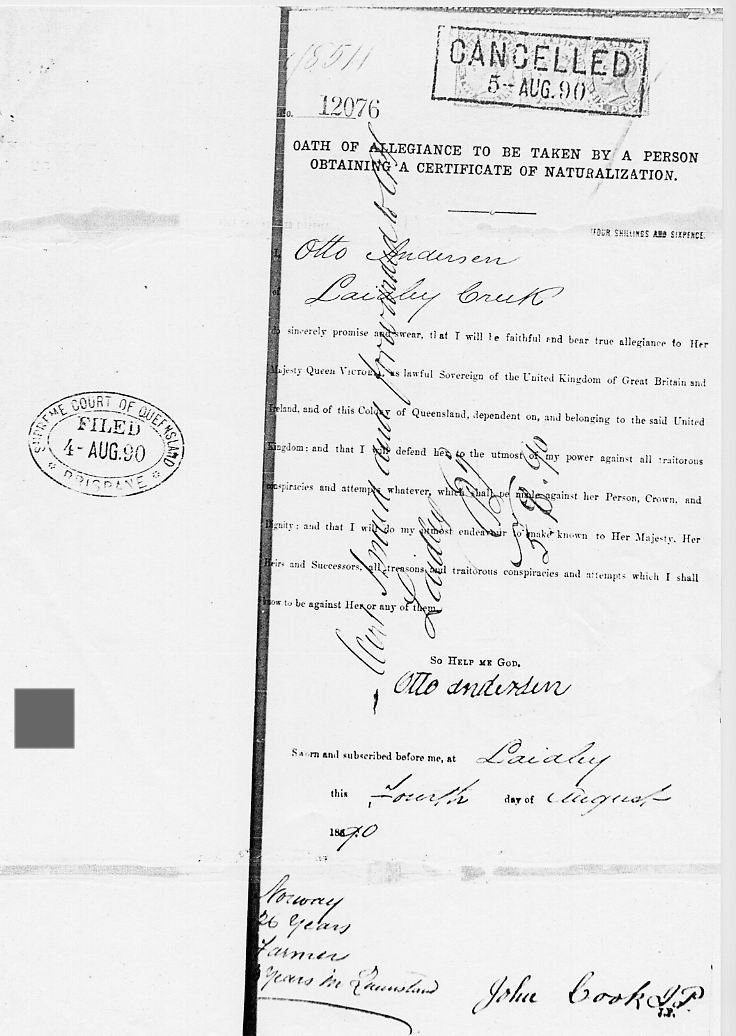 18511
CANCELLED
5- AUG. 90
No. 12076
OATH OF ALLEGIANCE TO BE TAKEN BY A PERSON
OBTAINING A CERTIFICATE OF NATURALIZATION.
FOUR SHILLINGS AND SIXPENCE.
I, Otto Andersen
of Laidley Creek
do sincerely promise and swear, that I will be faithful and bear true allegiance to Her
Majesty Queen VICTORIA, as lawful Sovereign of the United Kingdom of Great Britain and
Ireland, and of this Colony of Queensland, dependent on, and belonging to the said United
Kingdom; and that I will defend her to the utmost of my power against all traitorous
conspiracies and attempts whatever, which shall be made against her Person, Crown, and
Dignity; and that I will do my utmost endeavour to make known to Her Majesty, Her
Heirs and Successors, all treasons and traitorous conspiracies and attempts which I shall
know to be against Her or any of them.
SO HELP ME GOD.
Otto andersen
Sworn and subscribed before me, at Laidley
this Fourth day of August
1890
Norway
26 Years
Farmer
Years in Queensland
John Cook J.P.
J.P.
and forwarded to
Laidley
5.8.90
SUPREME COURT OF QUEENSLAND
FILED
4- AUG. 90
BRISBANE